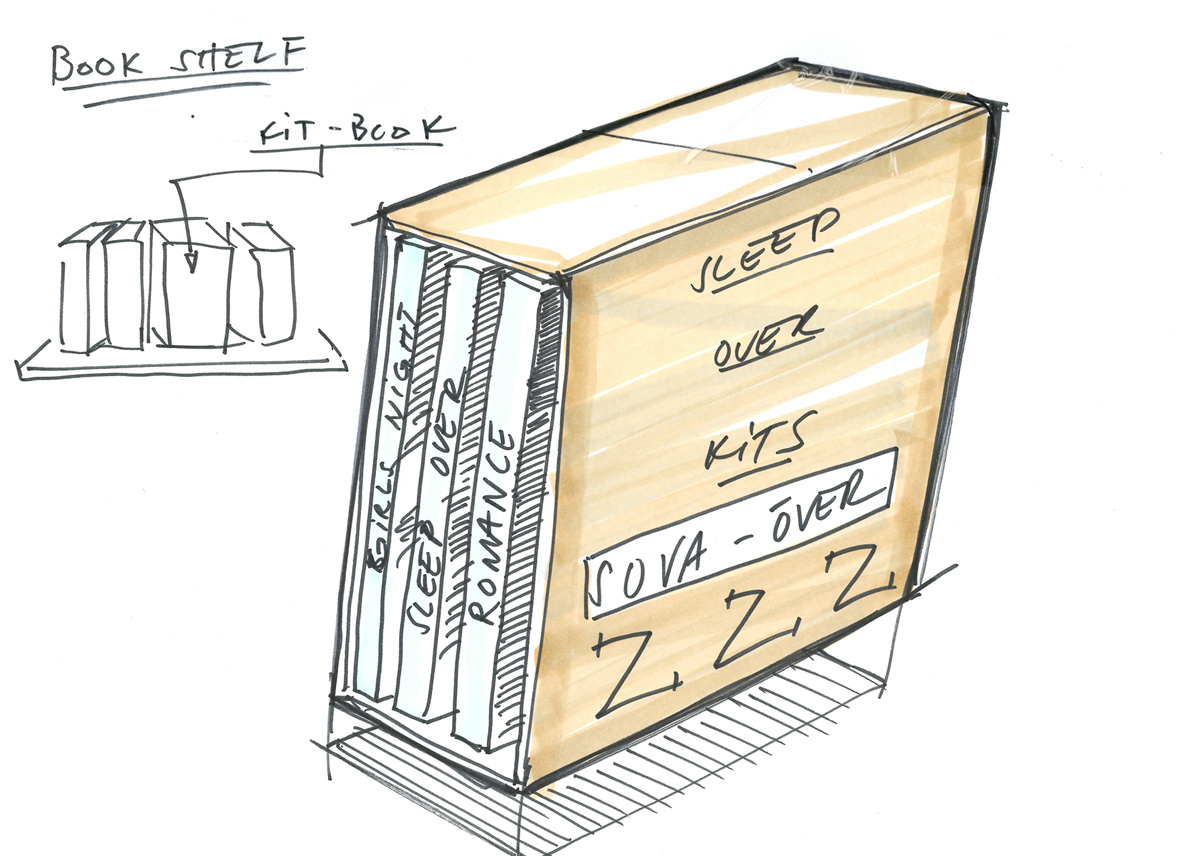 BOOK SHELF
KiT-BOOK
GiRLS NIGHT
SLEEP OVER
ROMANCE
SLEEP
OVER
KiTS
SOVA-ÖVER
Z Z Z